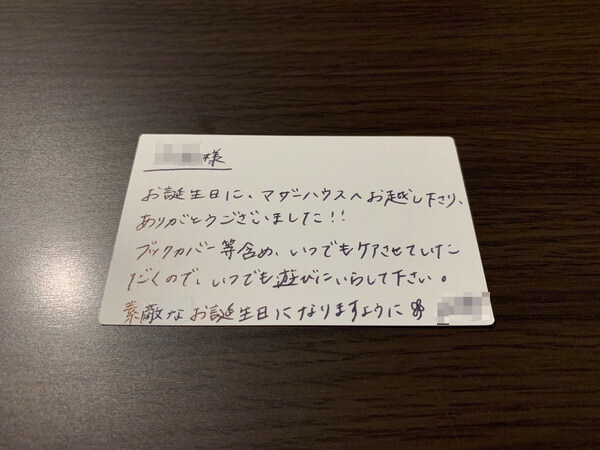 様
お誕生日に、マザーハウスへお越し下さり、
ありがとうございました!!
ブックカバー等含め、いつでもケアさせていた
だくので、いつでも遊びにいらして下さい。
素敵なお誕生日になりますように